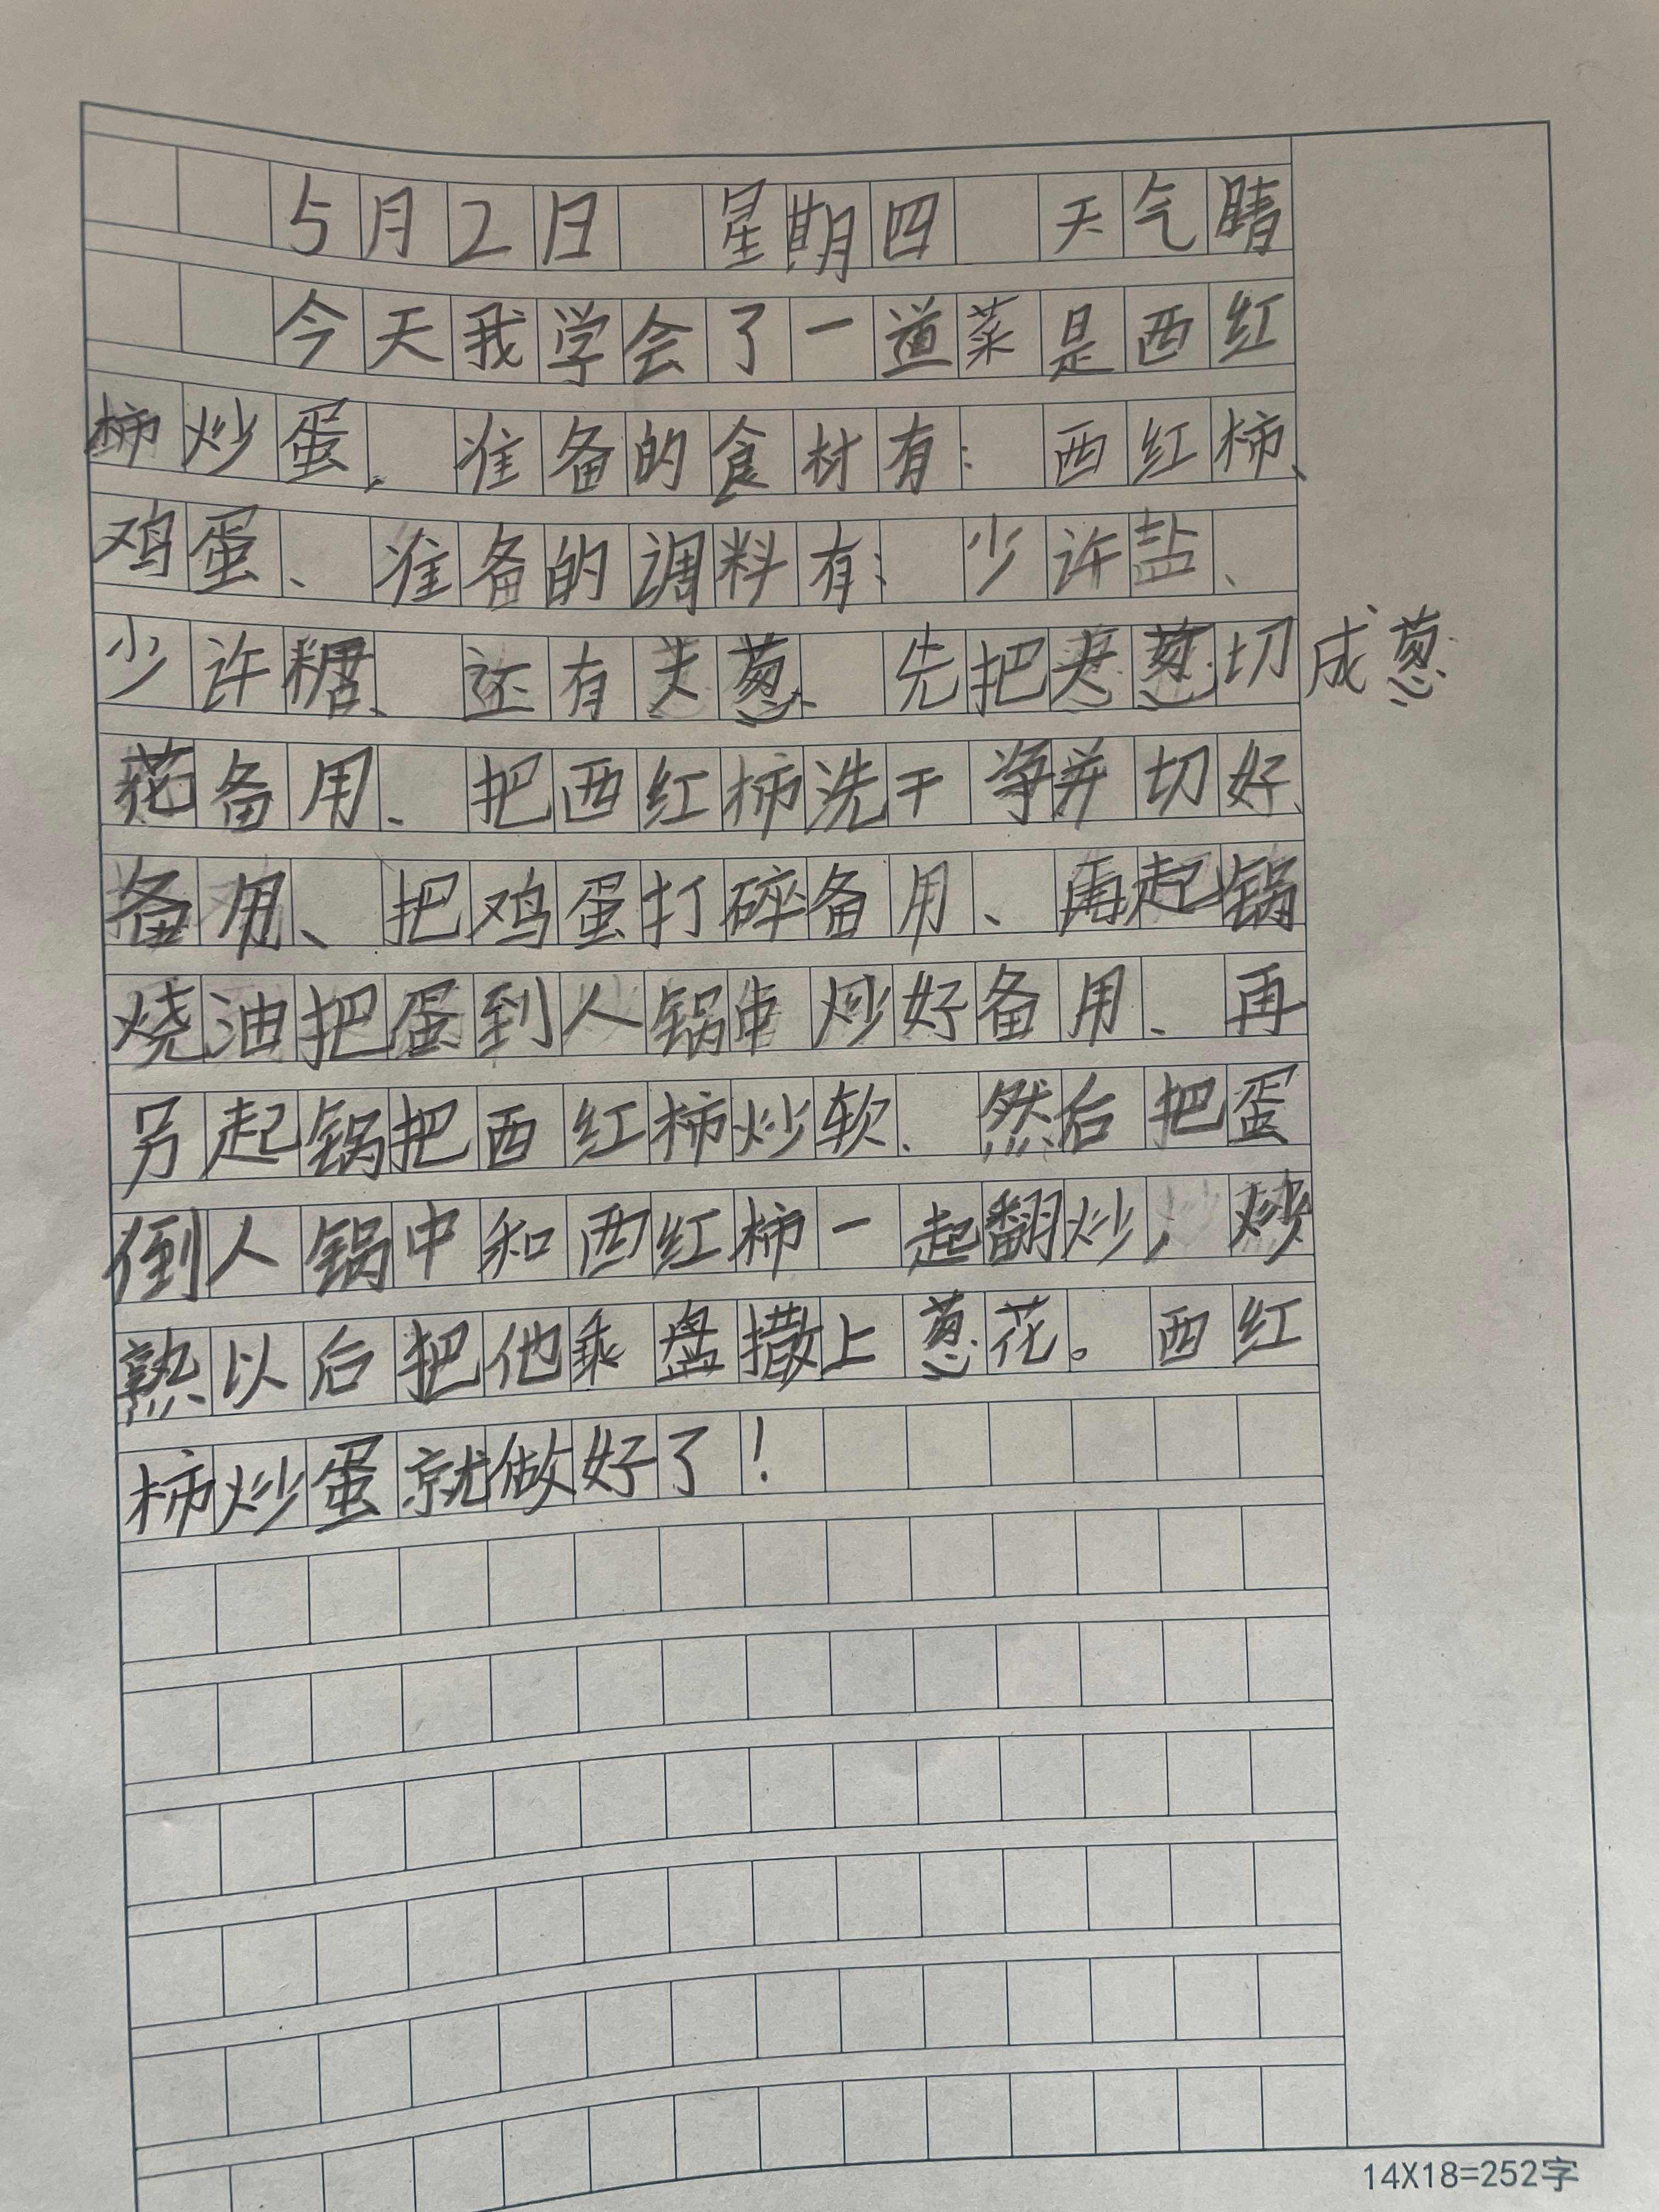 5月2日 星期四 天气晴
今天我学会了一道菜是西红
柿炒蛋. 准备的食材有: 西红柿、
鸡蛋、准备的调料有: 少许盐、
少许糖、还有大葱、先把大葱切成葱
花备用、把西红柿洗干净并切好
备用、把鸡蛋打碎备用、再起锅
烧油把蛋到入锅中炒好备用、再
另起锅把西红柿炒软、然后把蛋
倒入锅中和西红柿一起翻炒, 炒
熟以后把他乘盘撒上葱花。西红
柿炒蛋就做好了!
14X18=252字